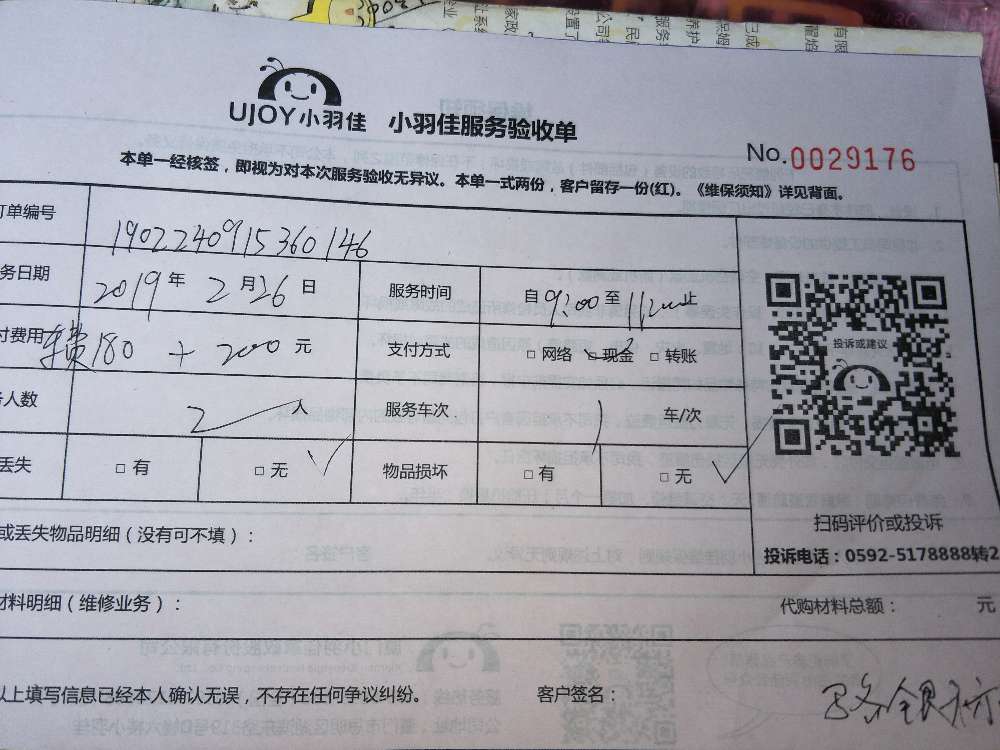 UJOY小羽佳 小羽佳服务验收单
No.0029176
本单一经核签，即视为对本次服务验收无异议。本单一式两份，客户留存一份(红)。《维保须知》详见背面。
订单编号 1902240915360146
务日期 2019年2月26日 服务时间 自9:00至11:00止
付费用 车费180+200元 支付方式 □网络 □现金 □转账
人数 2人 服务车次 1车/次
丢失 □有 □无 ✓ 物品损坏 □有 □无 ✓
投诉或建议
扫码评价或投诉
投诉电话：0592-5178888转2
或丢失物品明细（没有可不填）：
材料明细（维修业务）： 代购材料总额： 元
以上填写信息已经本人确认无误，不存在任何争议纠纷。 客户签名：